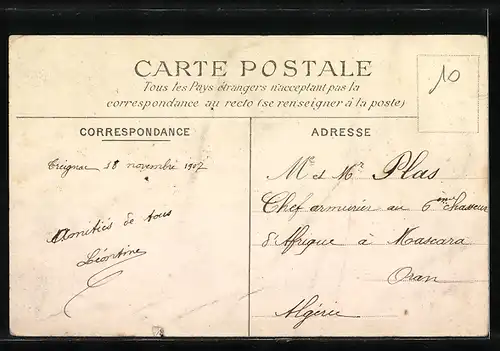 CARTE POSTALE
Tous les Pays étrangers n'acceptant pas la
correspondance au recto (se renseigner à la poste)
10
CORRESPONDANCE
ADRESSE
Treignac 18 novembre 1907
Amitiés de tous
Léontine
Mr & Mme Plas
Chef armurier au 6ème chasseur
d'Afrique à Mascara
Oran
Algérie